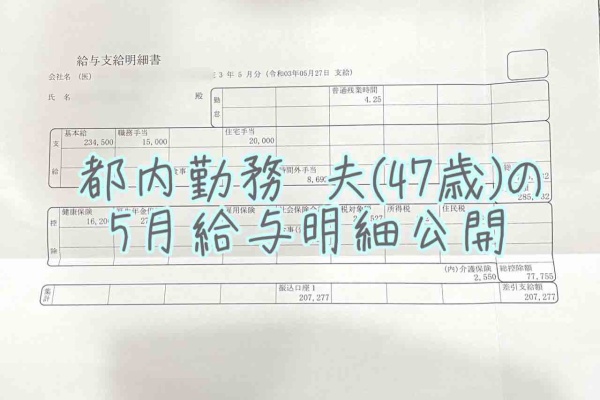 給与支給明細書
会社名 (医)
3 年 5 月分 (令和03年05月27日 支給)
氏 名 殿
勤怠 普通残業時間
4.25
支給
基本給 職務手当 住宅手当
234,500 15,000 20,000
時間外手当
都内勤務 夫(47歳)の
5月給与明細公開
控除
健康保険 雇用保険 社会保険合 税対象 所得税 住民税
16,20
(内)介護保険 総控除額
2,550 77,755
集計 振込口座1 差引支給額
207,277 207,277